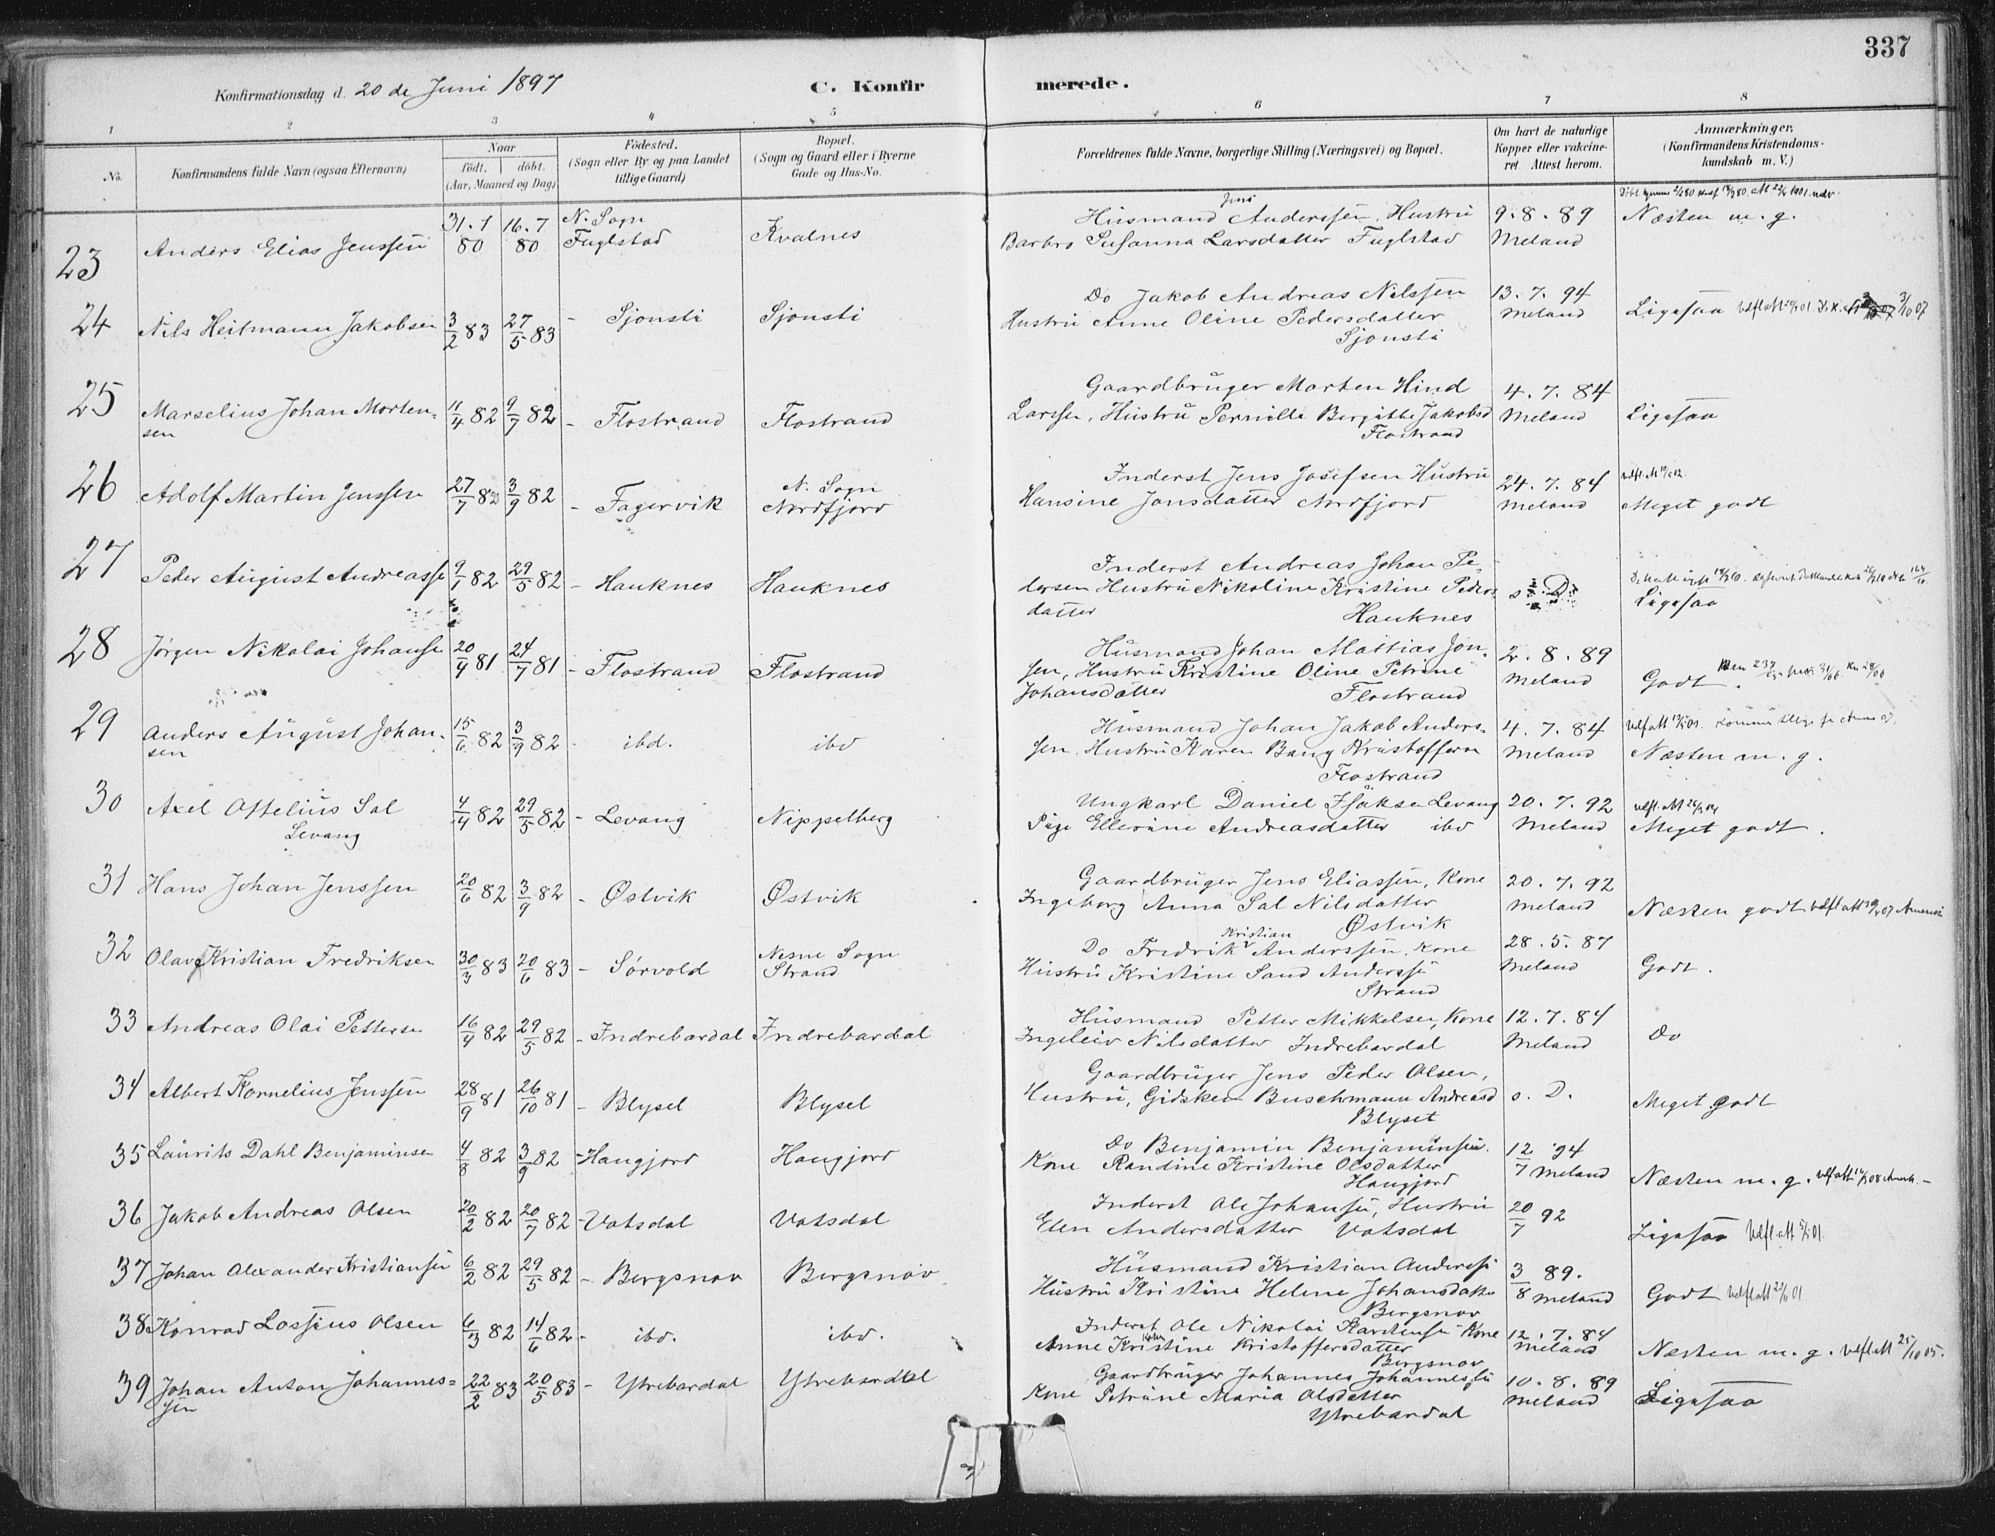 337
Konfirmationsdag d. 20 de Juni 1897 C. Konfirmerede.
1 2 3 4 5 6 7 8
No. Konfirmandens fulde Navn (ogsaa Efternavn) Naar født. døbt. (Aar, Maaned og Dag) Fødested. (Sogn eller By og paa Landet tillige Gaard) Bopæl. (Sogn og Gaard eller i Byerne Gade og Hus-No. Forældrenes fulde Navne, borgerlige Stilling (Næringsvei) og Bopæl. Om havt de naturlige Kopper eller vaccineret. Attest herom. Anmærkninger. (Konfirmandens Kristendomskundskab m. V.)
23 Anders Elias Jenssen 31.1 80 16.7 80 N. Sogn Fuglstad Kvalnes Husmand Jens Anderssen, Hustru 9.8.89 Næsten m. g.
Barbro Susanna Larsdatter Fuglstad Meland
24 Nils Heitmann Jakobsen 3/2 83 27/5 83 - Sjonsti Sjonsti Do Jakob Andreas Nilssen 13.7.94 Ligesaa
Hustru Anne Oline Pedersdatter Meland
Sjonsti
25 Marselius Johan Morten- 11/4 82 9/7 82 - Flostrand Flostrand Gaardbruger Morten Hind 4.7.84
sen Larssen, Hustru Pernille Bergitte Jakobsd Meland Ligesaa
Flostrand
26 Adolf Martin Jenssen 27/7 82 3/9 82 - Fagervik N. Sogn Nordfjord Inderst Jens Josefsen Hustru 24.7.84
Hansine Jonsdatter Nordfjord Meland Meget godt
27 Peder August Andreasse 9/1 82 29/5 82 - Hauknes Hauknes Inderst Andreas Johan Pe-
dersen Hustru Nikoline Kristine Peders s. D. Ligesaa
datter Hauknes
28 Jørgen Nikolai Johanse 20/4 81 24/7 81 - Flostrand Flostrand Husmand Johan Mattias Jon- 2.8.89
sen, Hustru Kristine Oline Petrine Meland Godt.
Johansdatter Flostrand
29 Anders August Johan- 15/6 82 3/9 82 - ibd. ibd Husmand Johan Jakob Anders- 4.7.84
sen sen. Hustru Karen Bang Kristoffersn Meland Næsten m. g.
Flostrand
30 Axel Ottelius Sal 4/4 82 29/5 82 - Levang Nippelberg Ungkarl Daniel Isaksen Levang 20.7.92
Levang Pige Ellevine Andreasdatter ibd Meland Meget godt.
31 Hans Johan Jenssen 20/6 82 3/9 82 - Østvik Østvik Gaardbruger Jens Eliassen, Kone 20.7.92
Ingeborg Anna Sal Nilsdatter Meland Næsten godt
Østvik
32 Olav Kristian Fredriksen 30/3 83 20/6 83 - Sørvold Nesne Sogn Strand Do Fredrik Kristian Anderssen, Kone 28.5.87
Hustru Kristine Sand Anderssd Meland Godt.
Strand
33 Andreas Olai Pettersen 16/4 82 29/5 82 - Indrebardal Indrebardal Husmand Petter Mikkelsen, Kone 12.7.84
Ingeleiv Nilsdatter Indrebardal Meland Do
34 Albert Kornelius Jenssen 28/9 81 26/10 81 - Blysel Blysel Gaardbruger Jens Peder Olsen,
Hustru, Gidsken Buschmann Andreasd s. D. Meget godt
Blyset
35 Laurits Dahl Benjaminsen 4/8 82 3/9 82 - Haugjord Haugjord Do Benjamin Benjaminsen. 12/7 94
Kone Randine Kristine Olsdatter Meland Næsten m. g.
Haugjord
36 Jakob Andreas Olsen 20/2 82 20/7 82 - Vatsdal Vatsdal Inderst Ole Johansen, Hustru 20/7 92
Elen Andersdatter Vatsdal Ligesaa
37 Johan Alexander Kristiansen 6/2 82 29/5 82 - Bergsnov Bergsnov Husmand Kristian Anderss 3/8 89.
Hustru Kristine Helene Johansdatte Meland Godt
Bergsnov
38 Konrad Lossius Olsen 6/3 82 14/6 82 - ibd. ibd. Inderst Ole Nikolai Karstensen Kone 12.7.84
Anne Kristine Kristoffersdatter Meland Næsten m. g.
Bergsnov
39 Johan Anton Johannes- 22/2 83 20/5 83 - Ytrebardal Ytrebardal Gaardbruger Johannes Johannessen 10.8.89
sen Kone Petrine Maria Olsdatter Meland Ligesaa
Ytrebardal